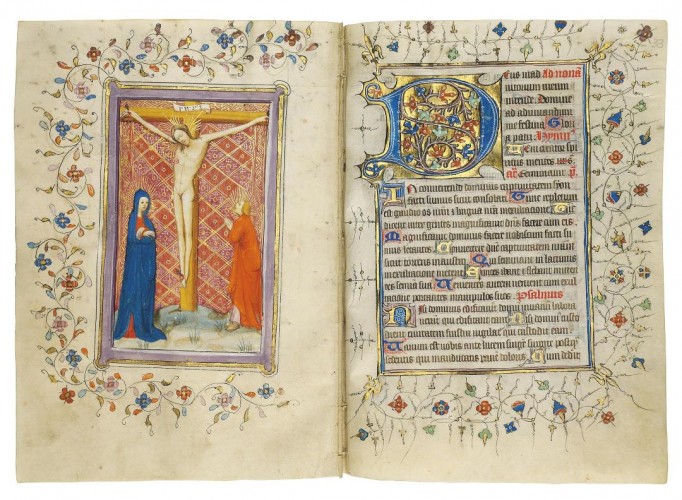 INRI
Deus in ad Ad nona
iutorium meum
intende. Domine
ad adiuvandum
me festina Glori
a patri. Hymn
Veni creator spi
ritus mentes
Germinavit
In convertendo dominus captivitatem syon
facti sumus sicut consolati. Tunc repletum
est gaudio os nrm et lingua nra in exultacione Tunc
dicent inter gentes magnificavit dns facere cum eis
Magnificavit dominus facere nobiscum facti su
mus letantes Converte dne captivitatem nram
sicut torrens in austro Qui seminant in lacrimis
in exultacione metent Euntes ibant et flebant mitten
tes semina sua Venientes autem venient cum exul
tacione portantes manipulos suos. Psalmus
Nisi dominus edificaverit domum in vanum labora
verunt qui edificant eam Nisi dns custo
dierit civitatem frustra vigilat qui custodit eam
Vanum est vobis ante lucem surgere surgite
sederitis qui manducatis panem doloris Cum dederit